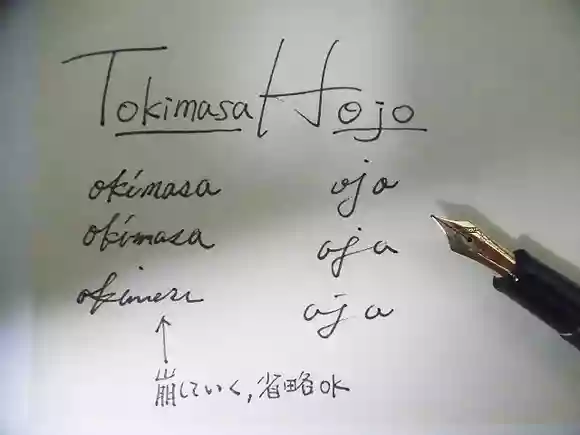 Tokimasa Hojo
okimasa ojo
okimasa ojo
okimesu ojo
崩していく,省略OK